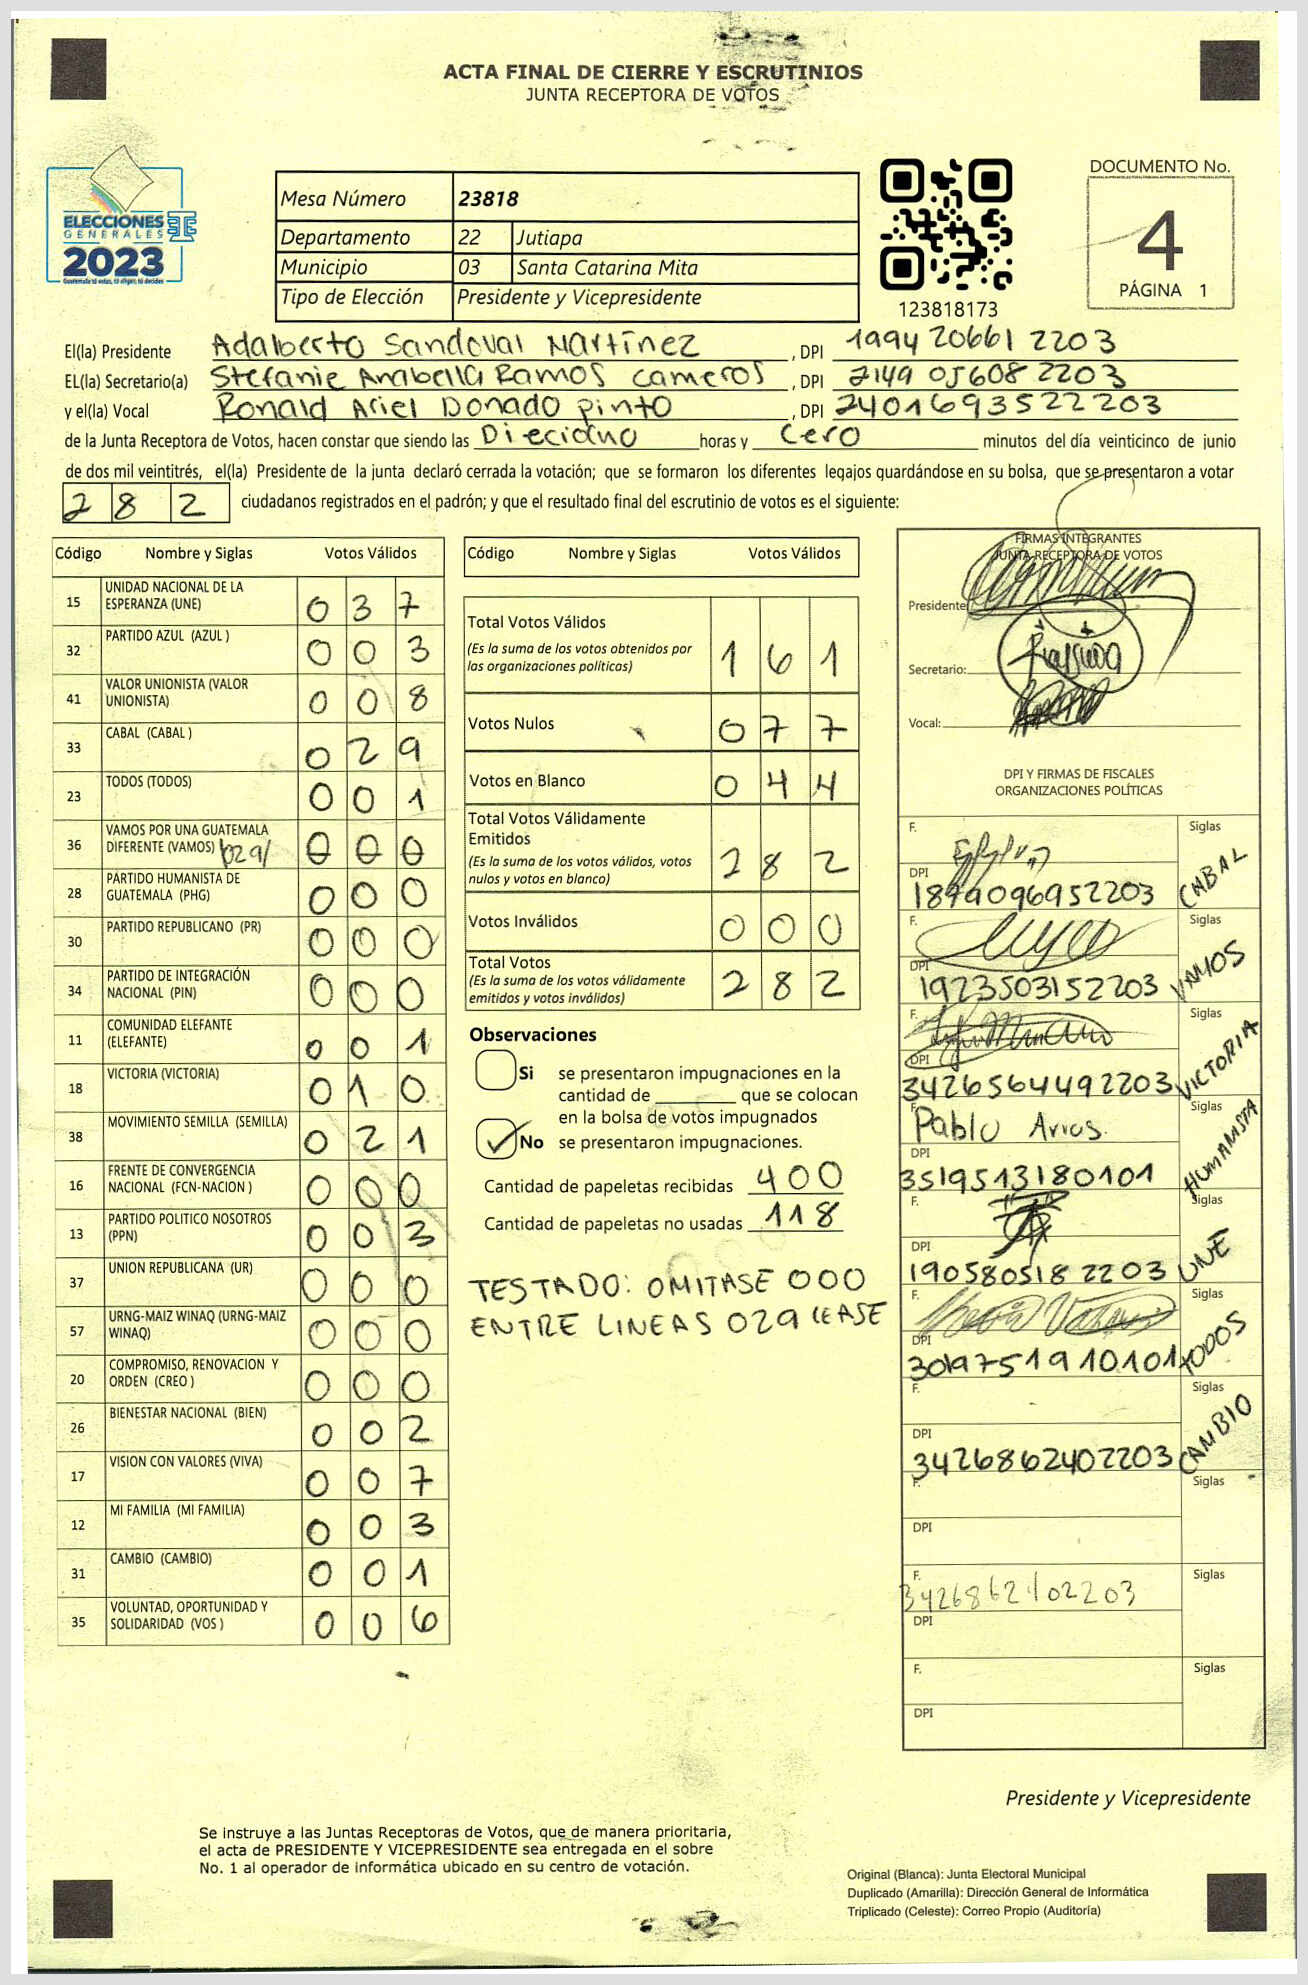 ACTA FINAL DE CIERRE Y ESCRUTINIOS
JUNTA RECEPTORA DE VOTOS
ELECCIONES
GENERALES
2023
Guatemala tú votas, tú eliges, tú decides
Mesa Número 23818
Departamento 22 Jutiapa
Municipio 03 Santa Catarina Mita
Tipo de Elección Presidente y Vicepresidente
123818173
DOCUMENTO No.
4
PÁGINA 1
El(la) Presidente Adalberto Sandoval Martínez , DPI 1994 20661 2203
EL(la) Secretario(a) Stefanie Anabella Ramos Cameros , DPI 2149 05608 2203
y el(la) Vocal Ronald Ariel Donado Pinto , DPI 2401693522203
de la Junta Receptora de Votos, hacen constar que siendo las Dieciocho horas y Cero minutos del día veinticinco de junio
de dos mil veintitrés, el(la) Presidente de la junta declaró cerrada la votación; que se formaron los diferentes legajos guardándose en su bolsa, que se presentaron a votar
2 8 2 ciudadanos registrados en el padrón; y que el resultado final del escrutinio de votos es el siguiente:
Código Nombre y Siglas Votos Válidos
15 UNIDAD NACIONAL DE LA ESPERANZA (UNE) 0 3 7
32 PARTIDO AZUL (AZUL ) 0 0 3
41 VALOR UNIONISTA (VALOR UNIONISTA) 0 0 8
33 CABAL (CABAL ) 0 2 9
23 TODOS (TODOS) 0 0 1
36 VAMOS POR UNA GUATEMALA DIFERENTE (VAMOS) /029/ 0 0 0
28 PARTIDO HUMANISTA DE GUATEMALA (PHG) 0 0 0
30 PARTIDO REPUBLICANO (PR) 0 0 0
34 PARTIDO DE INTEGRACIÓN NACIONAL (PIN) 0 0 0
11 COMUNIDAD ELEFANTE (ELEFANTE) 0 0 1
18 VICTORIA (VICTORIA) 0 1 0
38 MOVIMIENTO SEMILLA (SEMILLA) 0 2 1
16 FRENTE DE CONVERGENCIA NACIONAL (FCN-NACION ) 0 0 0
13 PARTIDO POLITICO NOSOTROS (PPN) 0 0 3
37 UNION REPUBLICANA (UR) 0 0 0
57 URNG-MAIZ WINAQ (URNG-MAIZ WINAQ) 0 0 0
20 COMPROMISO, RENOVACION Y ORDEN (CREO ) 0 0 0
26 BIENESTAR NACIONAL (BIEN) 0 0 2
17 VISION CON VALORES (VIVA) 0 0 7
12 MI FAMILIA (MI FAMILIA) 0 0 3
31 CAMBIO (CAMBIO) 0 0 1
35 VOLUNTAD, OPORTUNIDAD Y SOLIDARIDAD (VOS ) 0 0 6
Código Nombre y Siglas Votos Válidos
Total Votos Válidos 1 6 1
(Es la suma de los votos obtenidos por
las organizaciones políticas)
Votos Nulos 0 7 7
Votos en Blanco 0 4 4
Total Votos Válidamente
Emitidos 2 8 2
(Es la suma de los votos válidos, votos
nulos y votos en blanco)
Votos Inválidos 0 0 0
Total Votos 2 8 2
(Es la suma de los votos válidamente
emitidos y votos inválidos)
Observaciones
Si se presentaron impugnaciones en la
cantidad de ________ que se colocan
en la bolsa de votos impugnados
No se presentaron impugnaciones.
Cantidad de papeletas recibidas 400
Cantidad de papeletas no usadas 118
TESTADO: OMITASE 000
ENTRE LINEAS 029 LEASE
FIRMAS INTEGRANTES
JUNTA RECEPTORA DE VOTOS
Presidente
Secretario:
Vocal:
DPI Y FIRMAS DE FISCALES
ORGANIZACIONES POLÍTICAS
F. Siglas
DPI 1879096952203 CABAL
F. Siglas
DPI 1923503152203 VAMOS
F. Siglas
DPI 3426564492203 VICTORIA
F. Pablo Arias. Siglas
DPI 3519513180101 HUMANISTA
F. Siglas
DPI 1905805182203 UNE
F. Siglas
DPI 3019751910101 TODOS
F. Siglas
DPI 3426862402203 CAMBIO
F. Siglas
DPI
F. 3426862402203 Siglas
DPI
F. Siglas
DPI
Presidente y Vicepresidente
Se instruye a las Juntas Receptoras de Votos, que de manera prioritaria,
el acta de PRESIDENTE Y VICEPRESIDENTE sea entregada en el sobre
No. 1 al operador de informática ubicado en su centro de votación.
Original (Blanca): Junta Electoral Municipal
Duplicado (Amarilla): Dirección General de Informática
Triplicado (Celeste): Correo Propio (Auditoría)